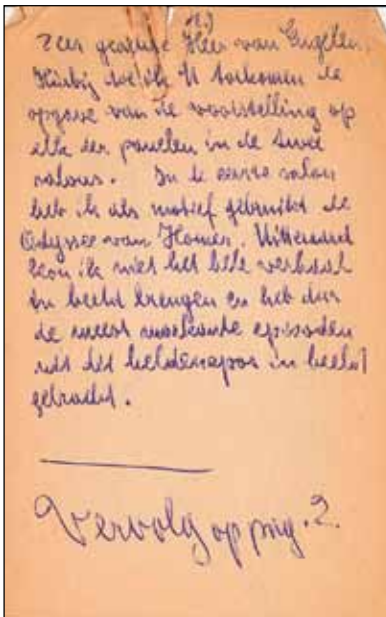 Zeer geachte Heer van Engellen,
Hierbij doe ik U toekomen de
opgave van de voorstelling op
elk der panelen in de twee
salons. In de eerste salon
heb ik als motief gebruikt de
Odyssee van Homer. Uitteraard
kon ik niet het hele verhaal
in beeld brengen en heb dus
de meest markante episoden
uit dit heldenepos in beeld
gebracht.
Vervolg op pag. 2.